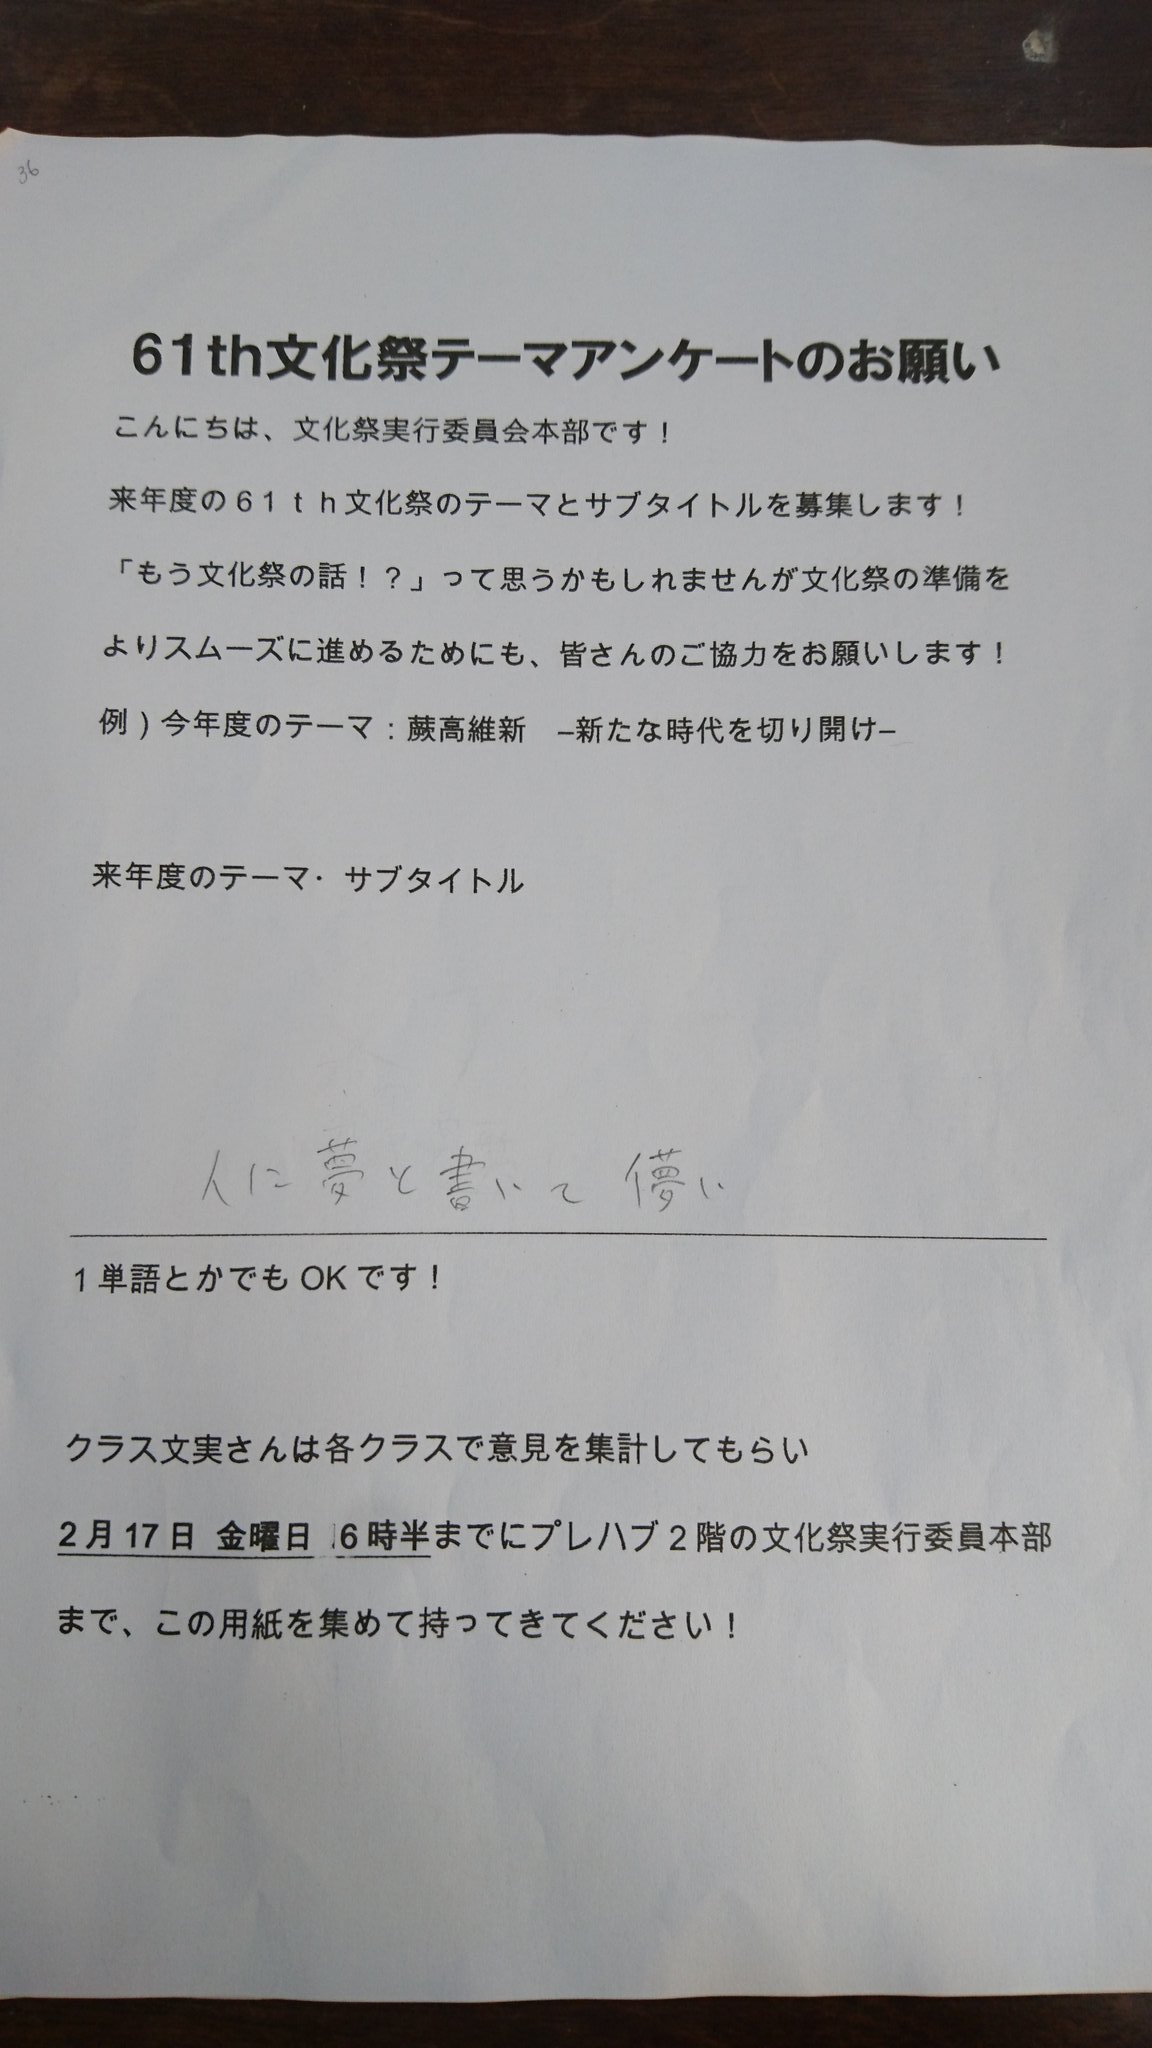 36
61th文化祭テーマアンケートのお願い
こんにちは、文化祭実行委員会本部です！
来年度の６１ｔｈ文化祭のテーマとサブタイトルを募集します！
「もう文化祭の話！？」って思うかもしれませんが文化祭の準備を
よりスムーズに進めるためにも、皆さんのご協力をお願いします！
例）今年度のテーマ：蕨高維新　–新たな時代を切り開け–
来年度のテーマ・サブタイトル
人に夢と書いて 儚い
1 単語とかでも OK です！
クラス文実さんは各クラスで意見を集計してもらい
2 月 17 日 金曜日 16 時半までにプレハブ 2 階の文化祭実行委員本部
まで、この用紙を集めて持ってきてください！